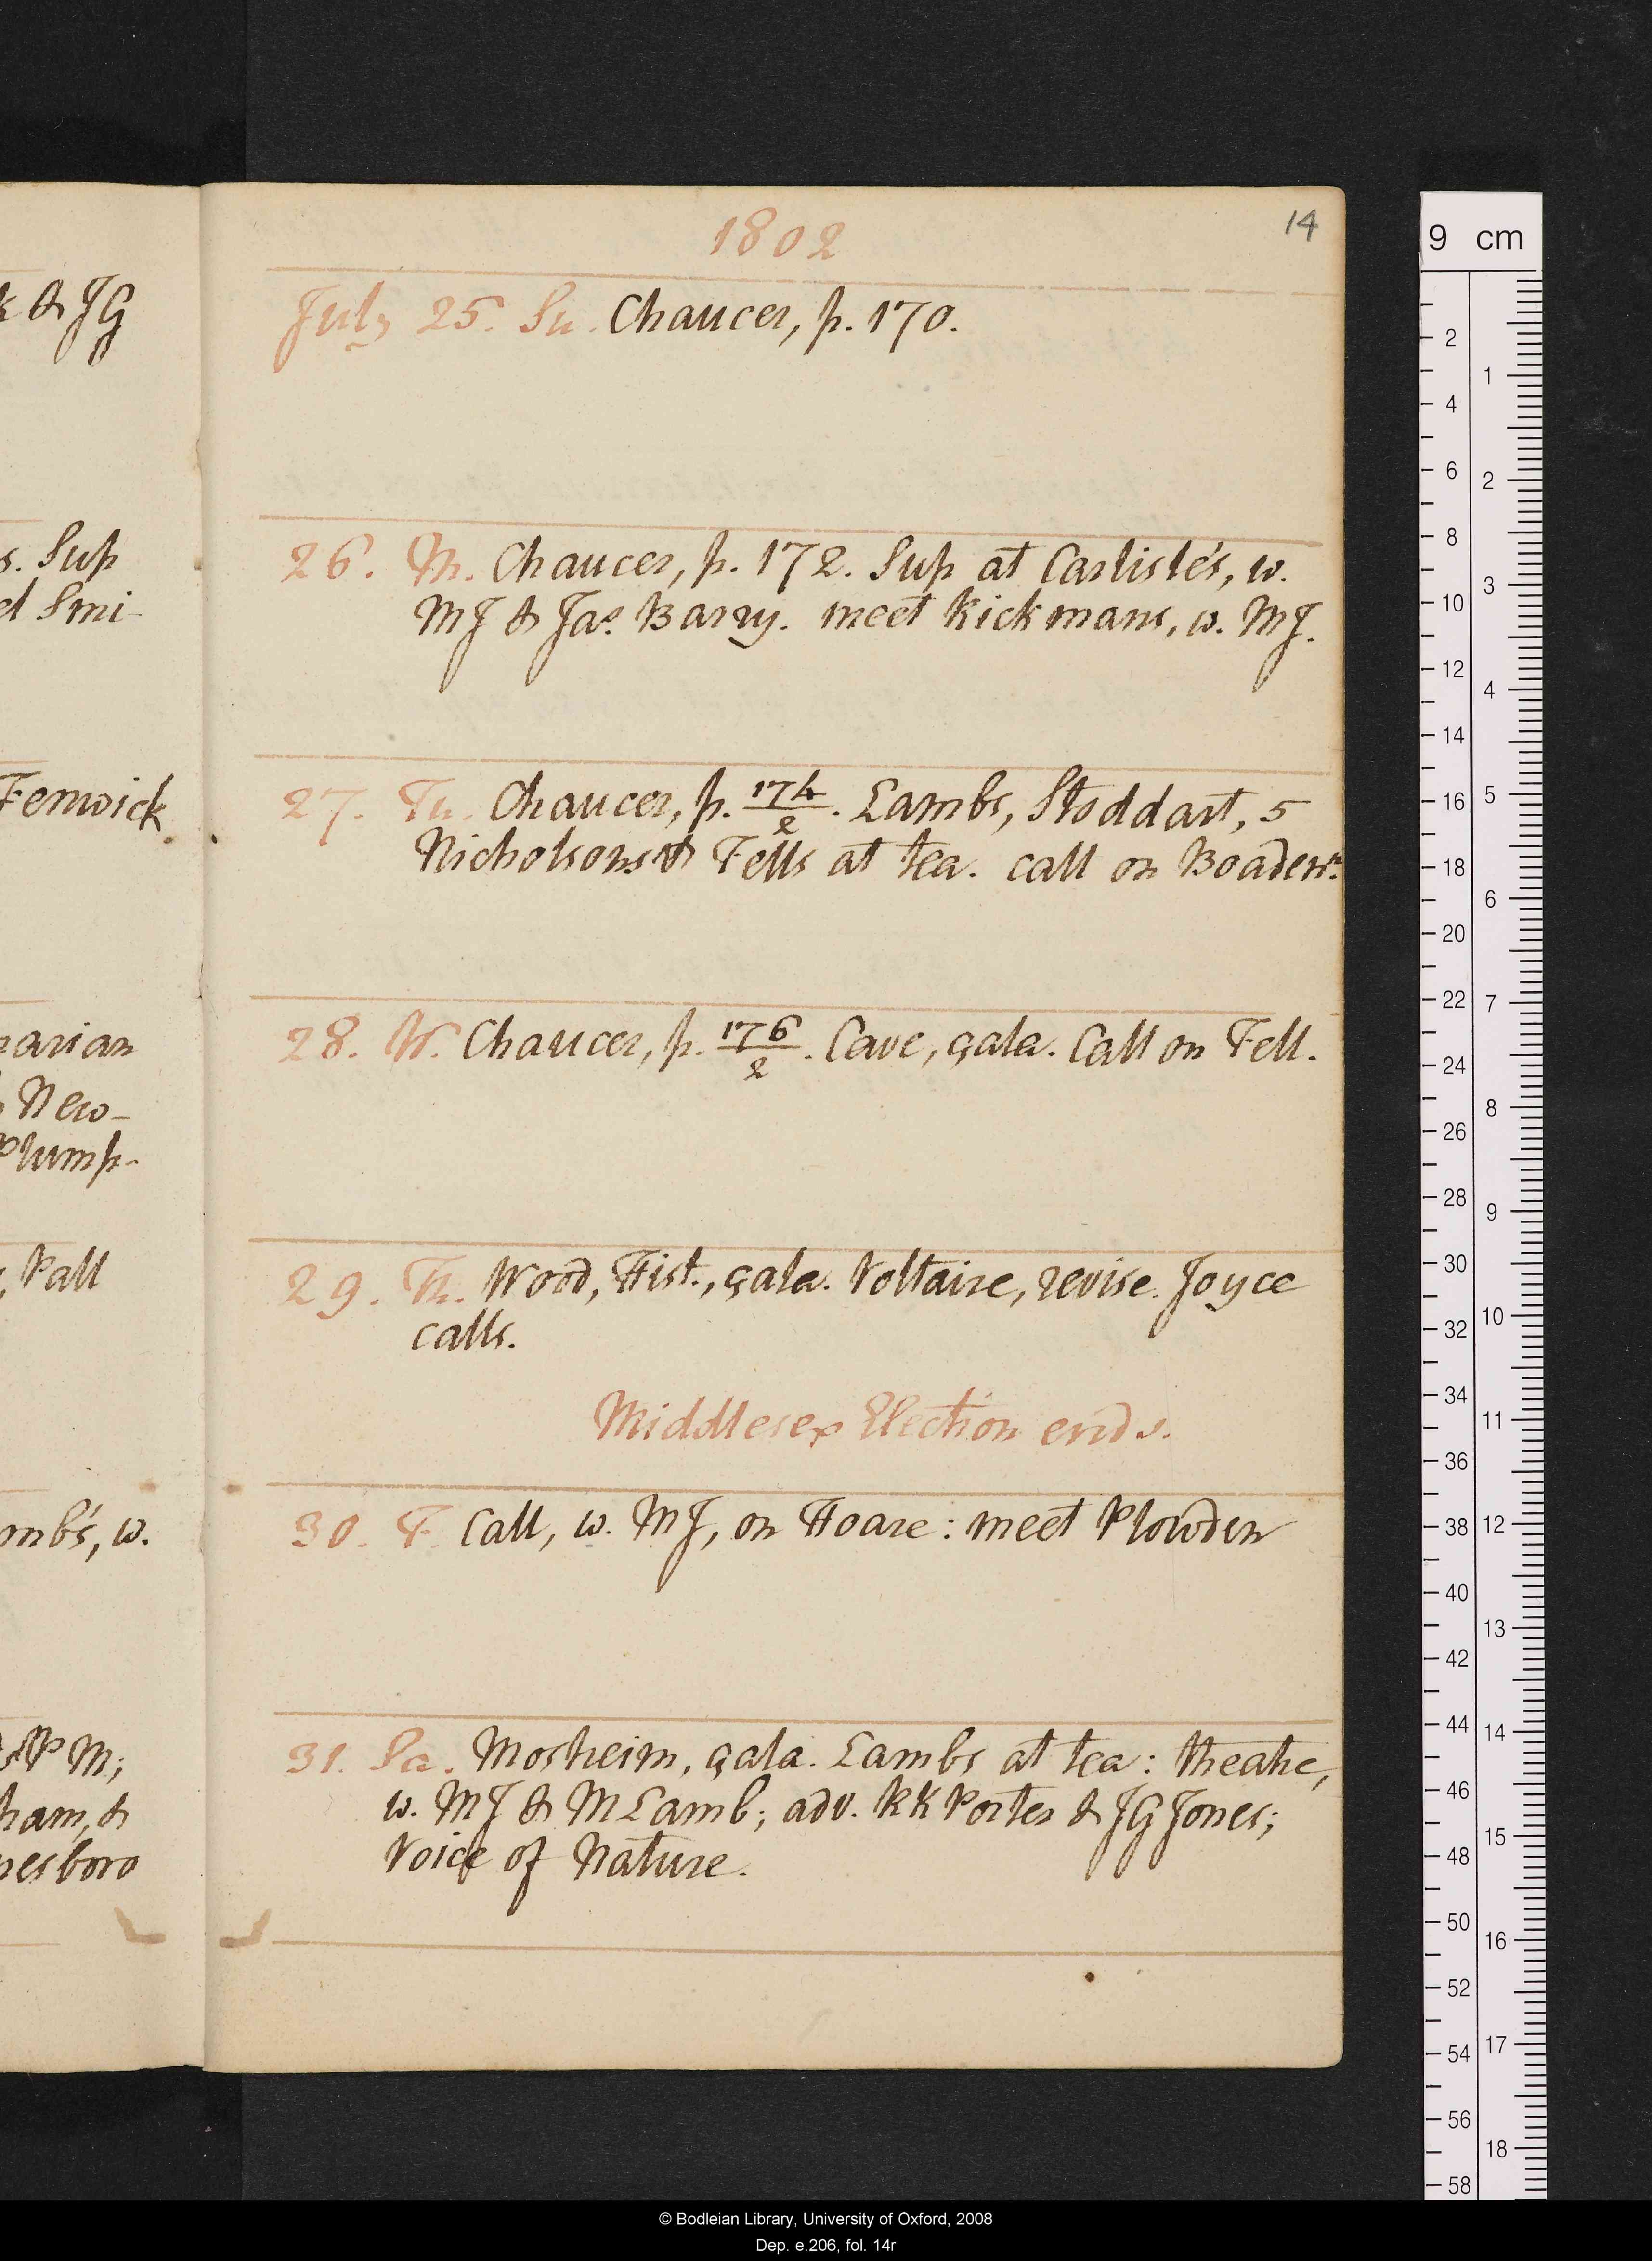 k & JG
s. Sup
d Smi-
Fenwick
narian
New-
Plump-
, Pall
mb's, w.
PM;
ham, &
nesboro
14
1802
July 25. Su. Chaucer, p. 170.
26. M. Chaucer, p. 172. Sup at Carlisle's, w.
MJ & Jas. Barry. meet Rickmans, w. MJ.
27. Tu. Chaucer, p. 174/2. Lambs, Stoddart, 5
Nicholsons & Fells at tea. call on Boaden n.
28. W. Chaucer, p. 176/2. Cave, çala. Call on Fell.
29. Th. Wood, Hist., çala. Voltaire, revise. Joyce
calls.
Middlesex Election ends.
30. F. Call, w. MJ, on Hoare: meet Plowden
31. Sa. Mosheim, çala. Lambs at tea: theatre,
w. MJ & M Lamb; adv. RK Porter & JG Jones;
Voice of Nature.
9 cm
2
4
6
8
10
12
14
16
18
20
22
24
26
28
30
32
34
36
38
40
42
44
46
48
50
52
54
56
58
1
2
3
4
5
6
7
8
9
10
11
12
13
14
15
16
17
18
© Bodleian Library, University of Oxford, 2008
Dep. e.206, fol. 14r